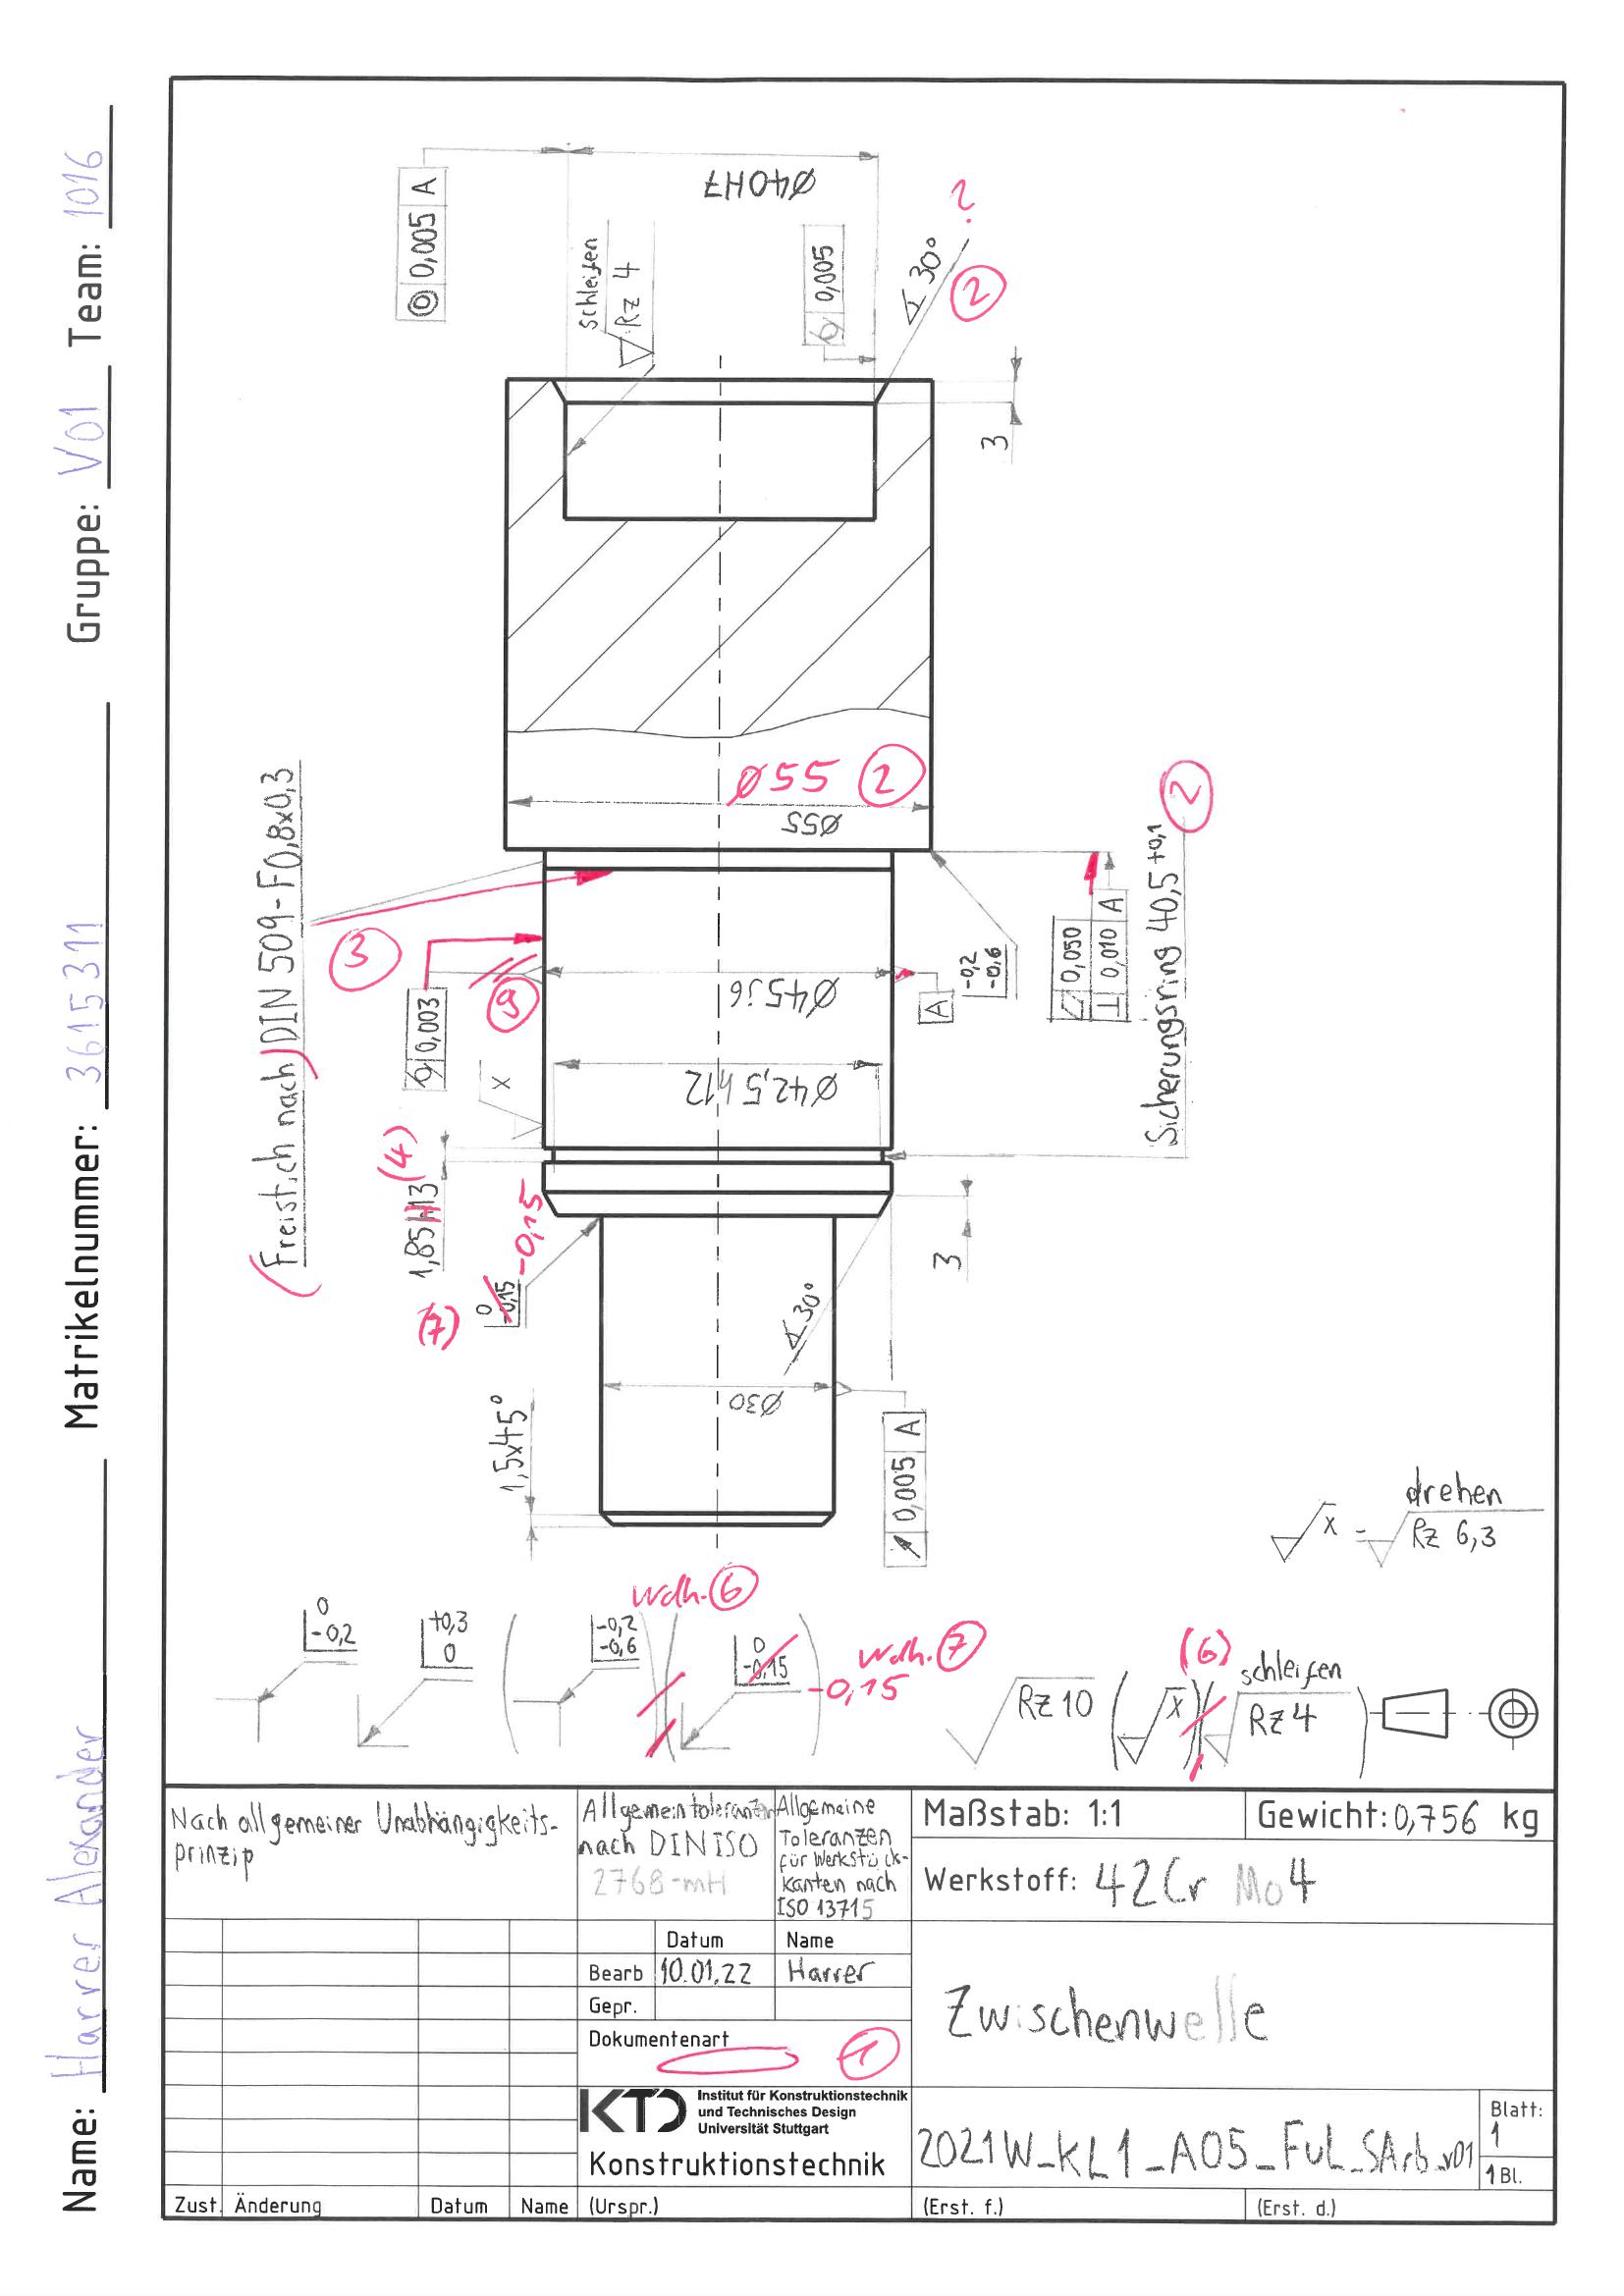 Name: Harrer Alexander Matrikelnummer: 3615311 Gruppe: V01 Team: 1016
◎ 0,005 A
Ø40H7
schleifen
Rz 4
0,005
∢30°
?
2
3
Ø55 2
Ø55
Freistich nach DIN 509-F0,8x0,3
3
0,003
9
Ø45j6
A
-0,2
-0,6
0,050
⊥ 0,010 A
Sicherungsring 40,5 +0,1
2
x
Ø42,5 h12
1,85H13
(4)
3
0
-0,15
-0,15
(7)
∢30°
Ø30
1,5x45°
↗ 0,005 A
x = drehen
Rz 6,3
0
-0,2
+0,3
0
-0,2
-0,6
wdh. 6
0
-0,15
-0,15
wdh. 7
Rz 10 (x) schleifen
Rz 4
(6)
Nach allgemeiner Unabhängigkeits-
prinzip
Allgemeintoleranzen
nach DIN ISO
2768-mH
Allgemeine
Toleranzen
für Werkstück-
kanten nach
ISO 13715
Maßstab: 1:1
Gewicht: 0,756 kg
Werkstoff: 42CrMo4
Datum Name
Bearb 10.01.22 Harrer
Gepr.
Dokumentenart
1
Zwischenwelle
KTD
Institut für Konstruktionstechnik
und Technisches Design
Universität Stuttgart
Konstruktionstechnik
2021W_KL1_A05_FuL_SArb_v01
Blatt:
1
1 Bl.
Zust. Änderung Datum Name (Urspr.) (Erst. f.) (Erst. d.)